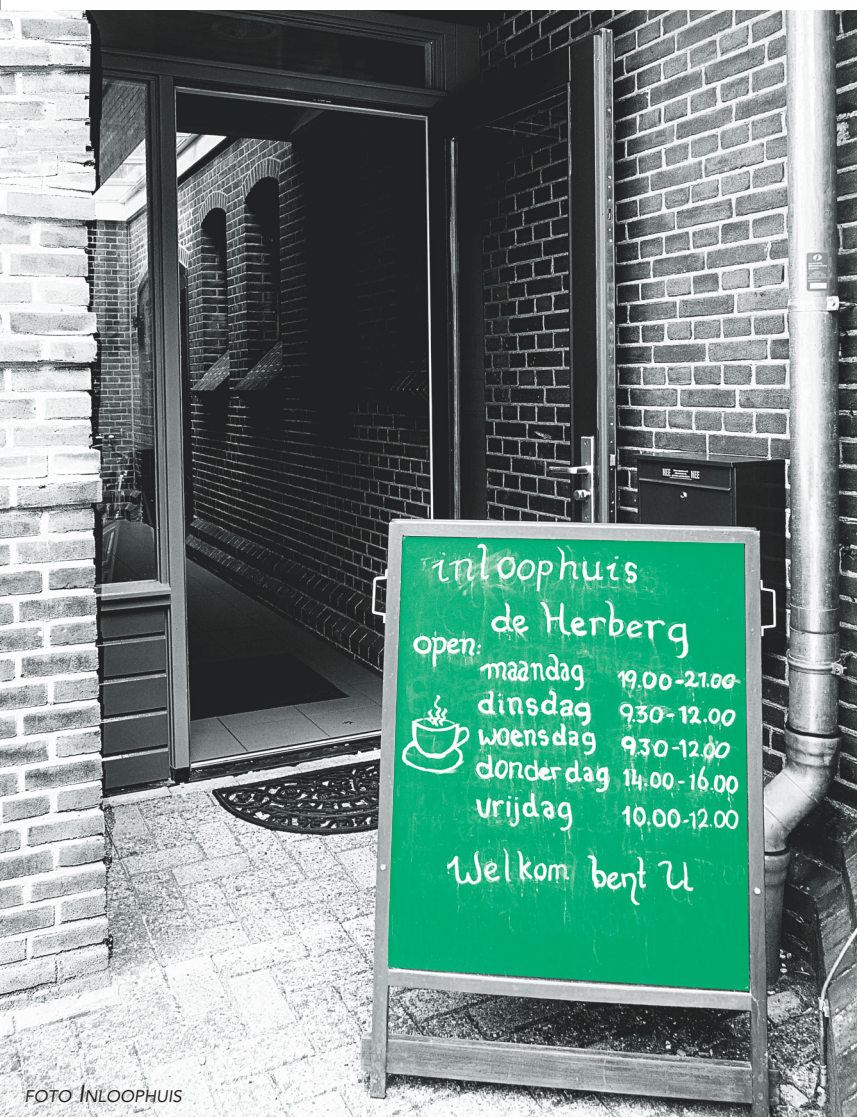 NEE NEE
inloophuis
de Herberg
open:
maandag 19.00-21.00
dinsdag 9.30-12.00
woensdag 9.30-12.00
donderdag 14.00-16.00
vrijdag 10.00-12.00
Welkom bent U
FOTO INLOOPHUIS